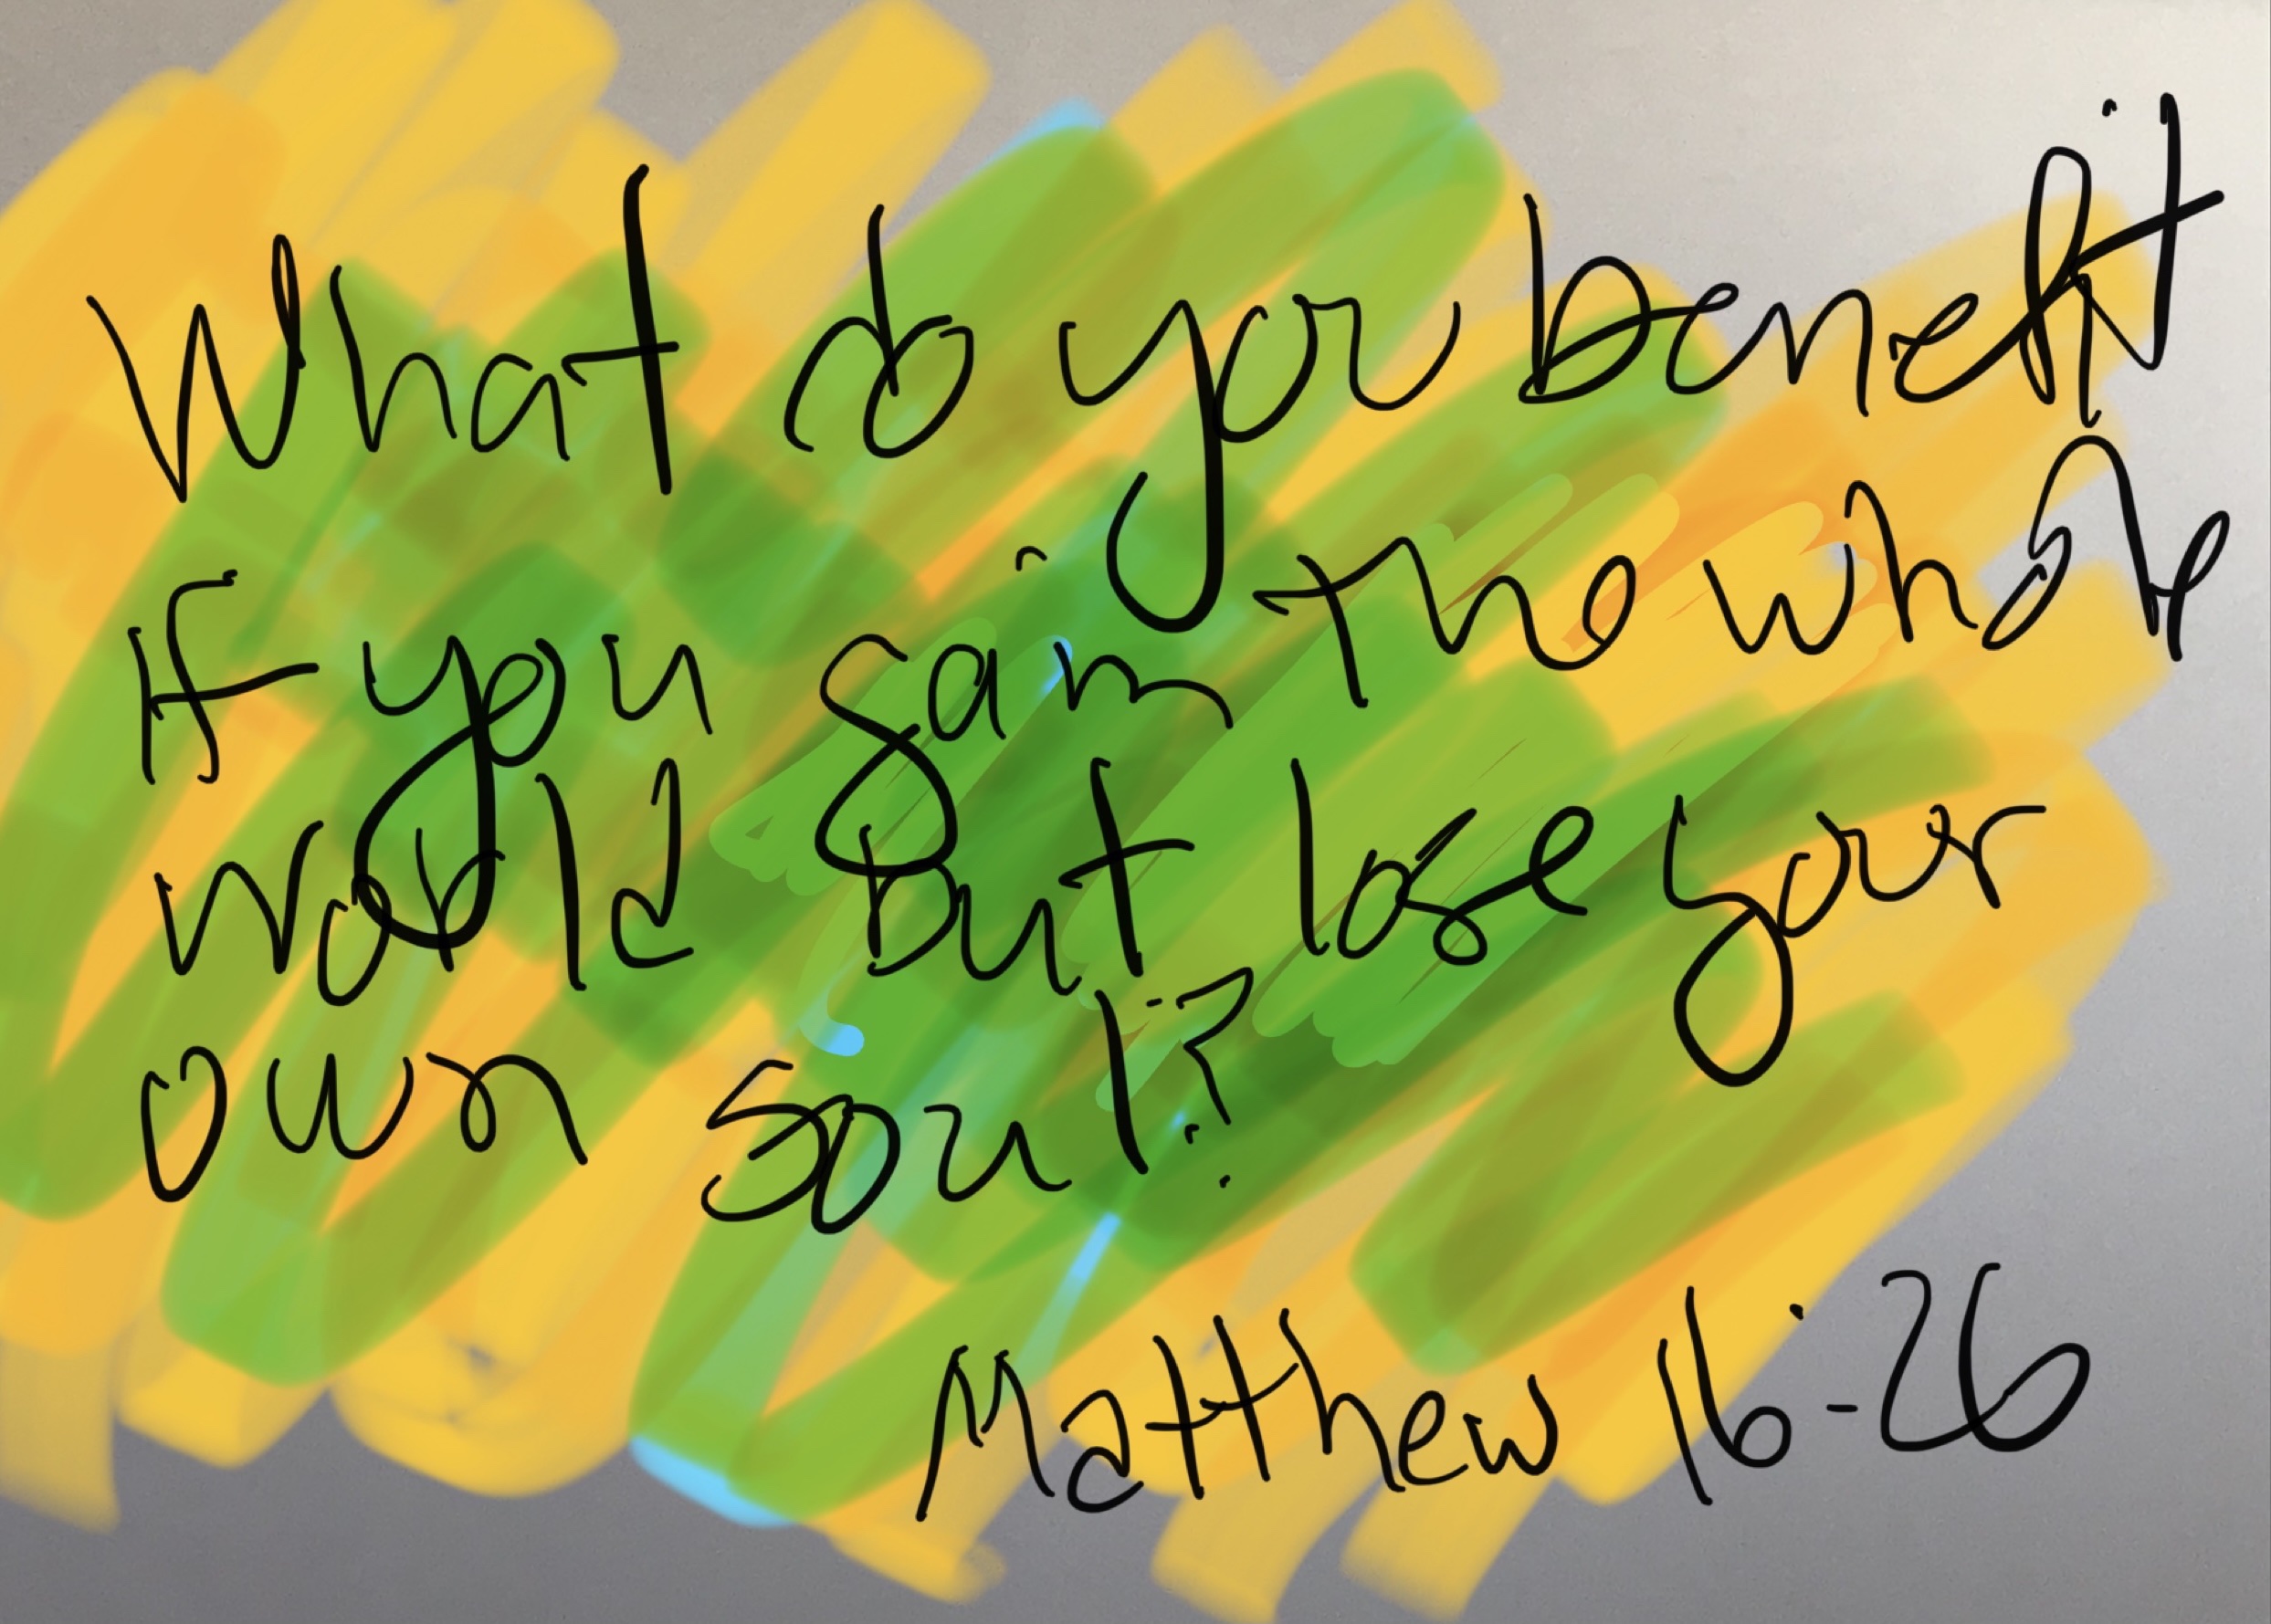 What do you benefit
If you gain the whole
world but lose your
own soul?
Matthew 16-26